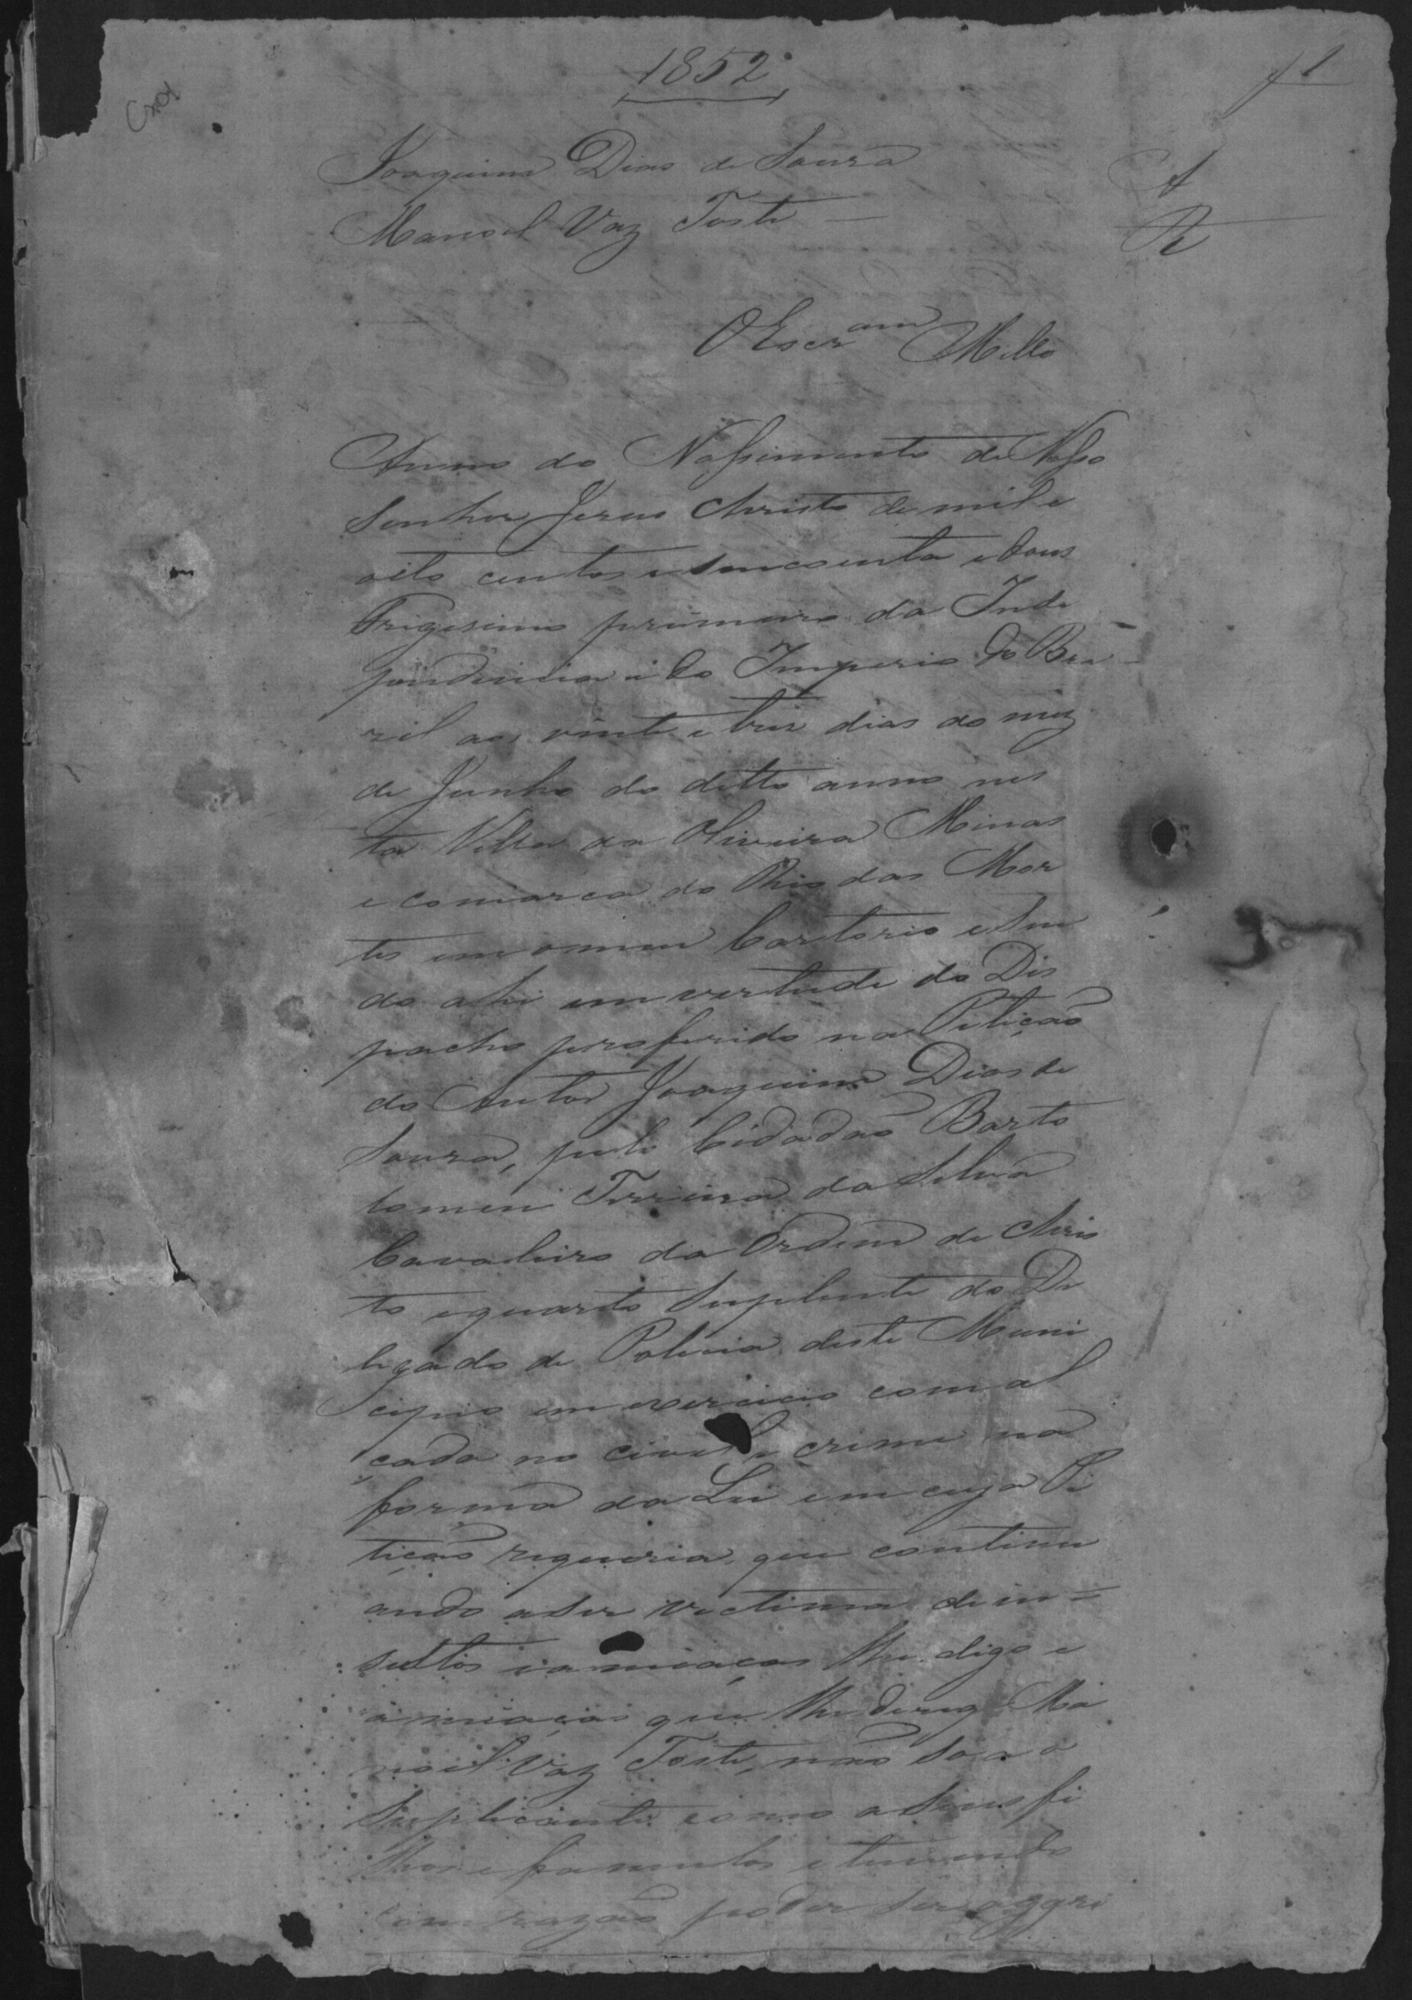 1852
f 1
Joaquim Dias de Souza A
Manoel Vaz Toste R
O Escr.am Mello
Anno do Nassimento de Nosso
Senhor Jesus Christo de mil e
oito centos e sincoenta e dous
Trigesimo primeiro da Inde
pendencia e do Imperio do Bra
zil aos vinte e tres dias do mez
de Junho do ditto anno nes
ta Villa da Oliveira Minas
e comarca do Rio das Mor
tes em o meu Cartorio e sen
do ahi em vertude do Dis
pacho proferido na Petiçaõ
do Autor Joaquim Dias de
Souza, pelo Cidadaõ Barto
lomeu Ferreira da Silva
Cavaleiro da Ordem de Chris
to e quarto Suplente do De
legado de Policia deste Muni
cipio em exercicio com al
cada no civel e crime na
forma da Lei em cuja Pe
tiçaõ requeria que continu
ando a ser victima de in=
sultos e amiaças lhe digo e
amiaças que lhe dirige Ma
noel Vaz Toste, naõ só a o
Suplicante como a seus fi
lhos e famulos e temendo
com razaõ poder ser aggri